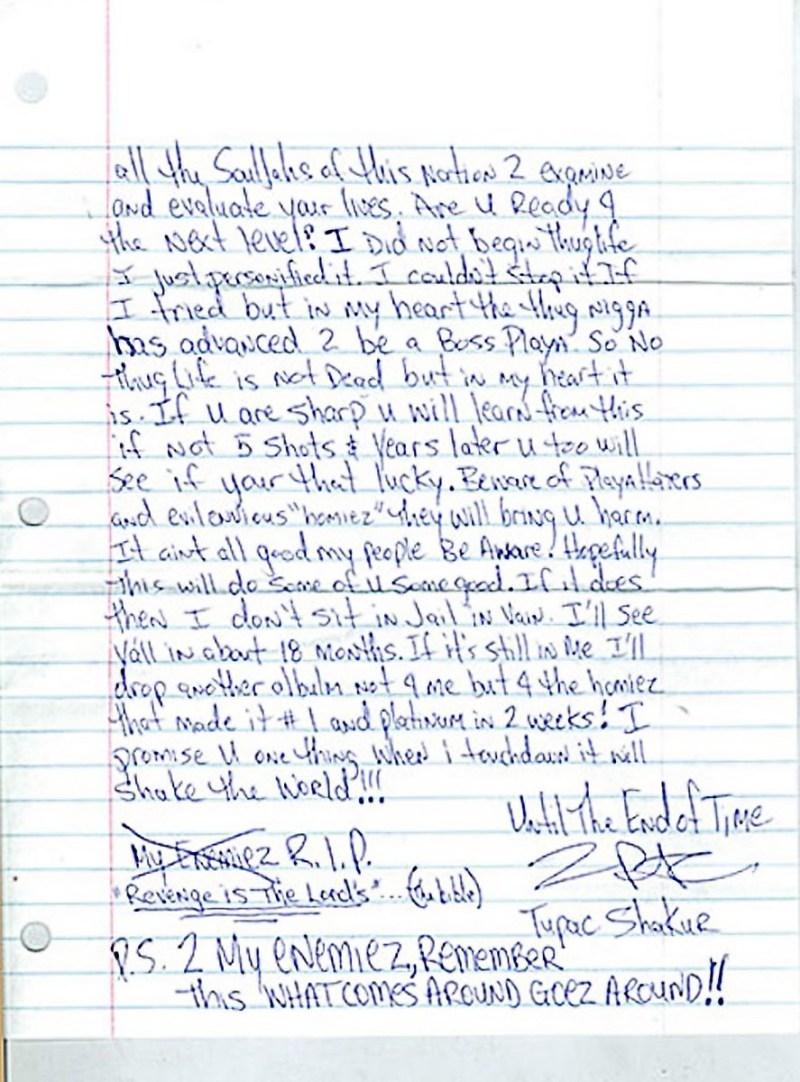 all the Souljahs of this Nation 2 examine
and evaluate your lives. Are U Ready 4
the Next level? I Did Not begin thuglife
I just personified it. I couldn't stop it If
I tried but in my heart the thug nigga
has advanced 2 be a Boss Playa. So No
thug Life is Not Dead but in my heart it
is. If U are sharp u will learn from this
if Not 5 shots & Years later u too will
see if your that lucky. Beware of PlayaHaters
and evil envious "homiez" they will bring U harm.
It aint all good my people Be Aware. Hopefully
this will do some of U some good. If it does
then I don't sit in Jail in Vain. I'll see
Yáll in about 18 months. If it's still in Me I'll
drop another album Not 4 me but 4 the homiez
that made it #1 and platinum in 2 weeks! I
promise U one thing when i touchdown it will
shake the World!!!
Until The End of Time
My Enemiez R.I.P.
"Revenge is The Lord's"... (the bible)
2PAC
Tupac Shakur
P.S. 2 My enemiez, Remember
this WHAT COMES AROUND GOEZ AROUND!!